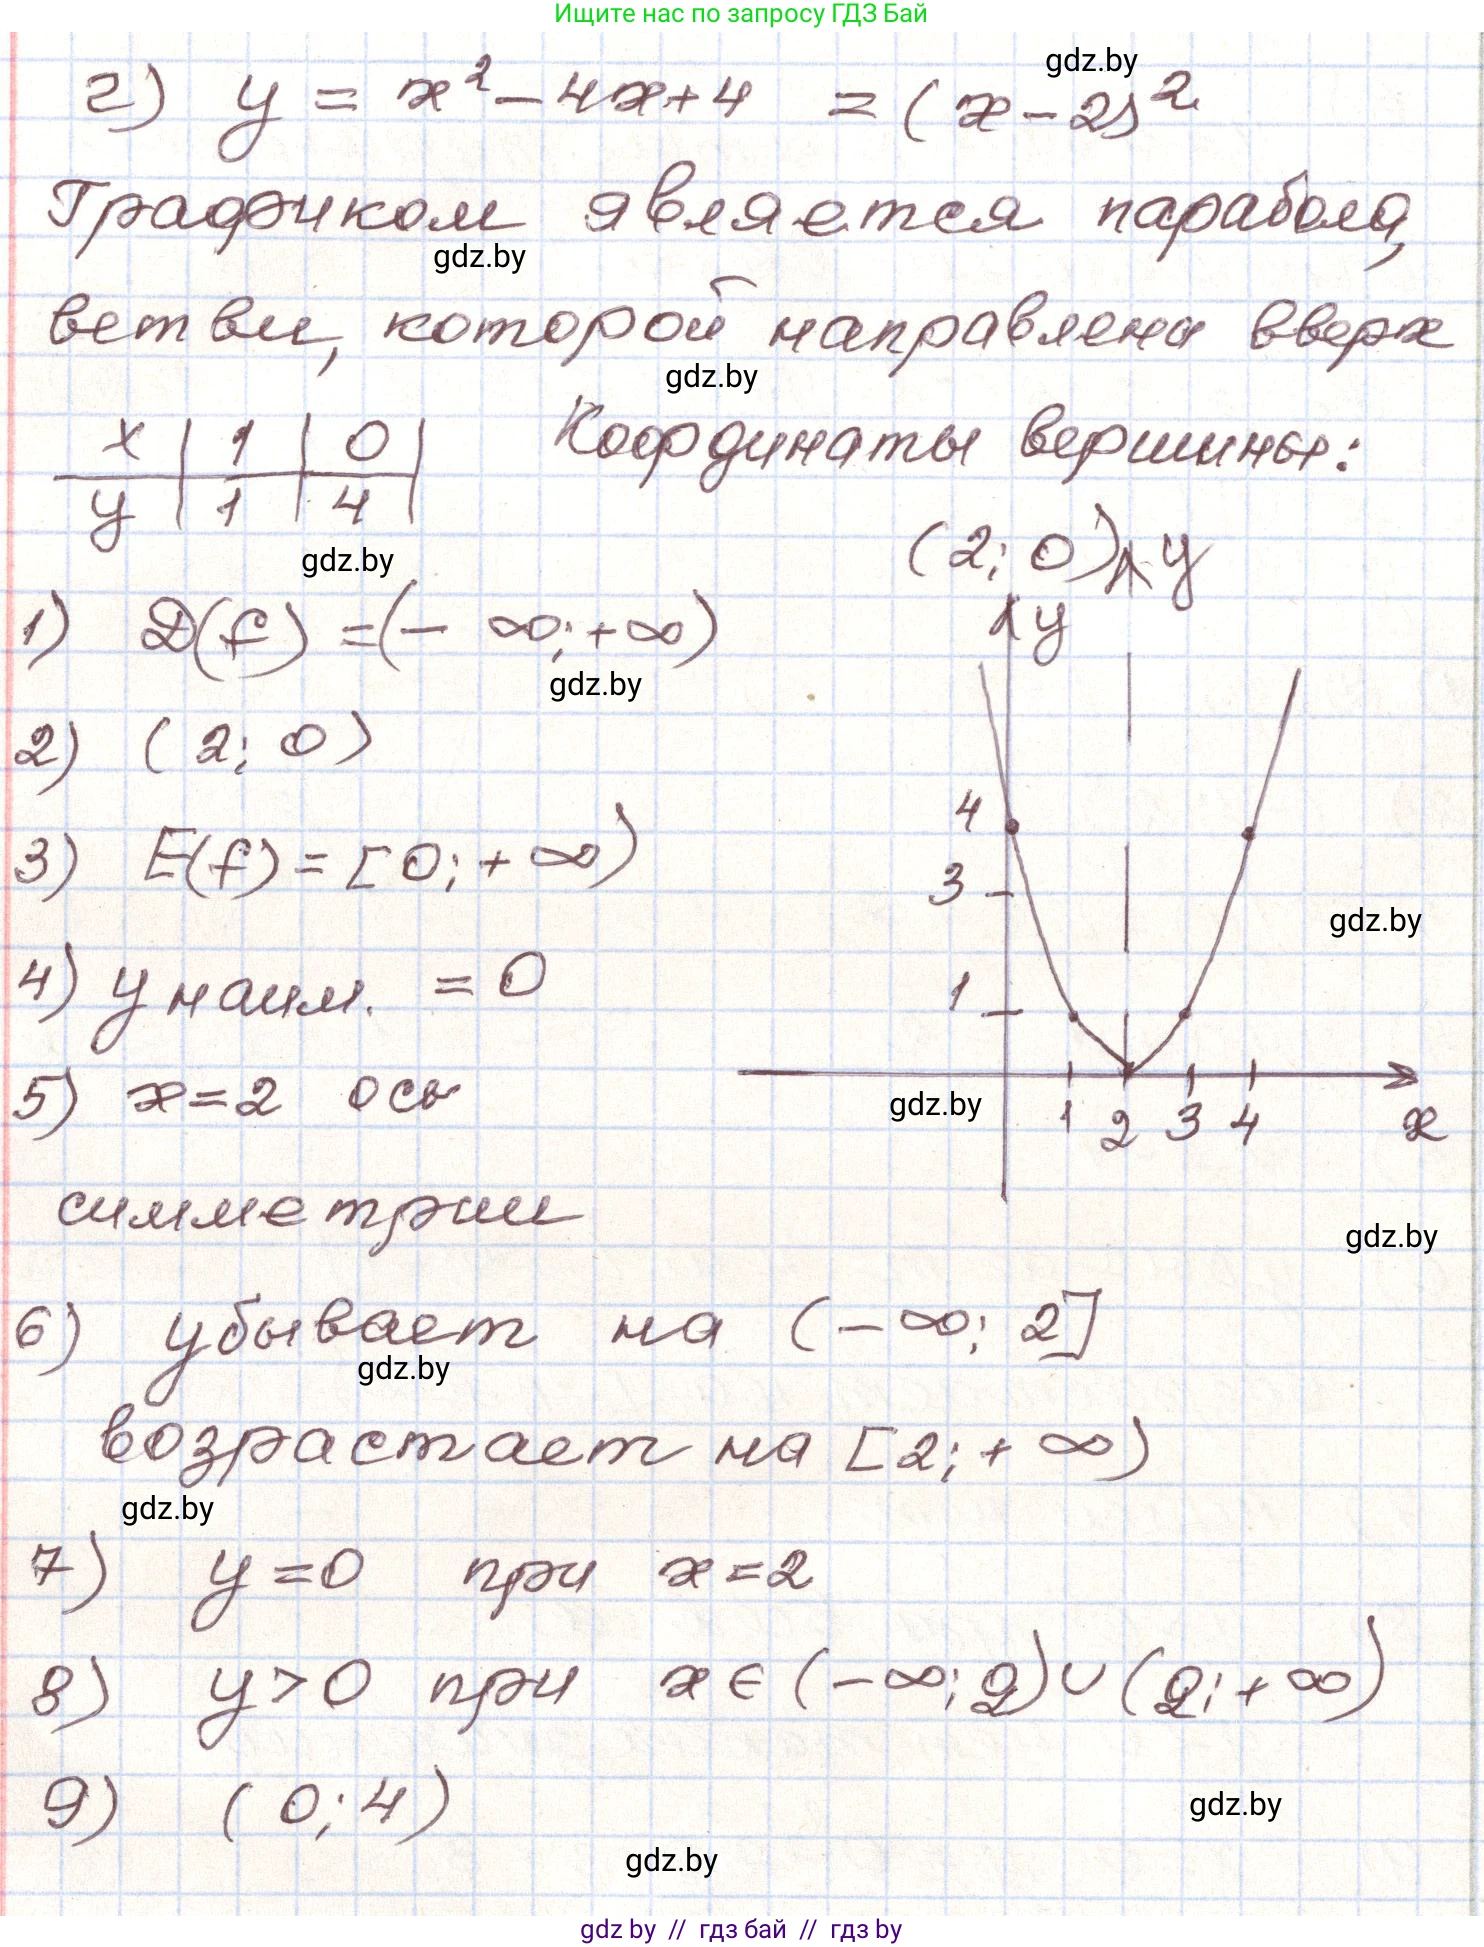 Ищите нас по запросу ГДЗ Бай
gdz.by
г) y = x² - 4x + 4 = (x - 2)²
Графиком является парабола,
gdz.by
ветви, которой направлены вверх
gdz.by
x | 1 | 0 |
y | 1 | 4 |
Координаты вершины:
(2; 0)
gdz.by
y
y
1) D(f) = (- ∞; +∞)
gdz.by
2) (2; 0)
3) E(f) = [0; + ∞)
4
3
1
gdz.by
4) y наим. = 0
5) x = 2 ось
gdz.by
1 2 3 4 x
симметрии
gdz.by
6) убывает на (- ∞; 2]
gdz.by
возрастает на [2; + ∞)
gdz.by
7) y = 0 при x = 2
8) y > 0 при x ∈ (- ∞; 2) ∪ (2; + ∞)
9) (0; 4)
gdz.by
gdz.by
gdz by // гдз бай // гдз by